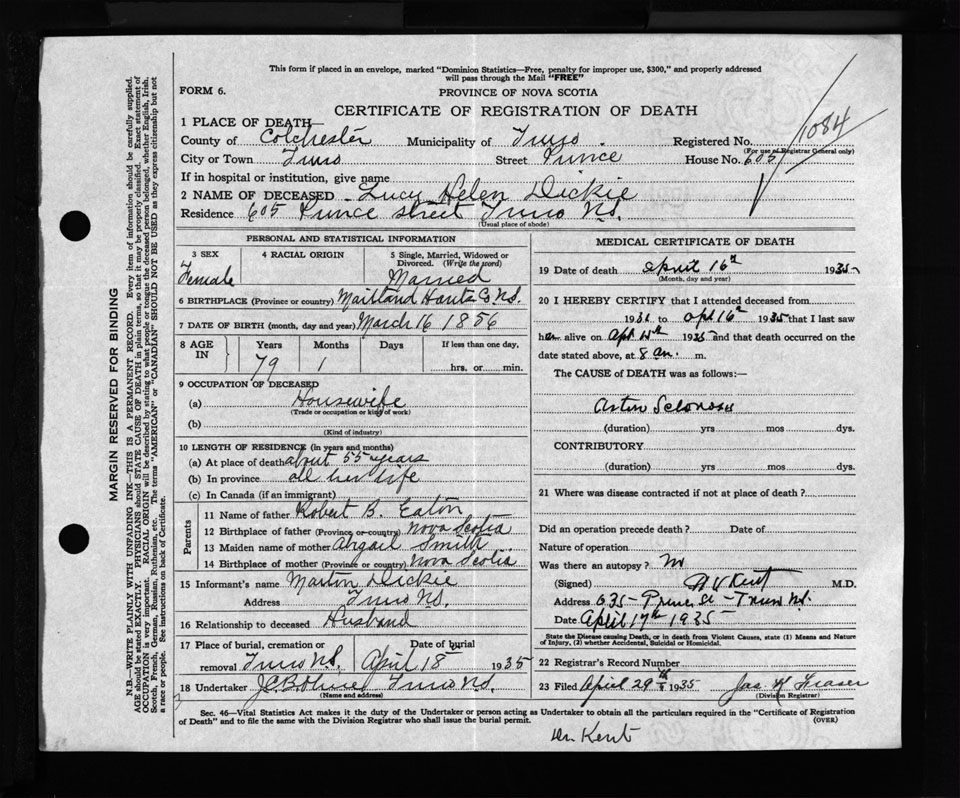 This form if placed in an envelope, marked "Dominion Statistics—Free, penalty for improper use, $300," and properly addressed
will pass through the Mail "FREE"
FORM 6.
PROVINCE OF NOVA SCOTIA
CERTIFICATE OF REGISTRATION OF DEATH
1084
1 PLACE OF DEATH—
County of Colchester Municipality of Truro Registered No.
(For use of Registrar General only)
City or Town Truro Street Prince House No. 605
If in hospital or institution, give name
2 NAME OF DECEASED Lucy Helen Dickie
Residence 605 Prince Street Truro N.S.
(Usual place of abode)
PERSONAL AND STATISTICAL INFORMATION
3 SEX 4 RACIAL ORIGIN 5 Single, Married, Widowed or
Divorced. (Write the word)
Female Married
6 BIRTHPLACE (Province or country) Maitland Hants Co N.S.
7 DATE OF BIRTH (month, day and year) March 16 1856
8 AGE IN Years Months Days If less than one day,
79 1 hrs. or min.
9 OCCUPATION OF DECEASED
(a) Housewife
(Trade or occupation or kind of work)
(b)
(Kind of industry)
10 LENGTH OF RESIDENCE (in years and months)
(a) At place of death about 55 years
(b) In province all her life
(c) In Canada (if an immigrant)
Parents
11 Name of father Robert B. Eaton
12 Birthplace of father (Province or country) Nova Scotia
13 Maiden name of mother Abgail Smith
14 Birthplace of mother (Province or country) Nova Scotia
15 Informant's name Martin Dickie
Address Truro N.S.
16 Relationship to deceased Husband
17 Place of burial, cremation or Date of burial
removal Truro N.S. April 18 1935
18 Undertaker Truro N.S.
MEDICAL CERTIFICATE OF DEATH
19 Date of death April 16th 1935
(Month, day and year)
20 I HEREBY CERTIFY that I attended deceased from
to Apl 16th 1935 that I last saw
her alive on Apl 1935 and that death occurred on the
date stated above, at 8 am. m.
The CAUSE of DEATH was as follows:—
(duration) yrs mos dys.
CONTRIBUTORY
(duration) yrs. mos. dys.
21 Where was disease contracted if not at place of death?
Did an operation precede death? Date of
Nature of operation
Was there an autopsy? No
(Signed) H V Kent M.D.
Address 635 - Prince St - Truro N.S.
Date April 17th 1935
State the Disease causing Death, or in death from Violent Causes, state (1) Means and Nature
of Injury, (2) whether Accidental, Suicidal or Homicidal.
22 Registrar's Record Number
23 Filed April 29th 1935 Jas. H Fraser
(Division Registrar)
Sec. 46—Vital Statistics Act makes it the duty of the Undertaker or person acting as Undertaker to obtain all the particulars required in the "Certificate of Registration
of Death" and to file the same with the Division Registrar who shall issue the burial permit. (OVER)
Dr. Kent
MARGIN RESERVED FOR BINDING
N.B.—WRITE PLAINLY WITH UNFADING INK—THIS IS A PERMANENT RECORD. Every item of information should be carefully supplied.
AGE should be stated EXACTLY. PHYSICIANS should STATE CAUSE OF DEATH in plain terms, so that it may be properly classified. Exact statement of
OCCUPATION is very important. RACIAL ORIGIN will be described by stating to what people or tongue the deceased person belonged, whether English, Irish,
Scotch, French, German, Russian, Ruthenian, etc. The terms "AMERICAN" or "CANADIAN" SHOULD NOT BE USED as they express citizenship but not
a race or people. See instructions on back of Certificate.